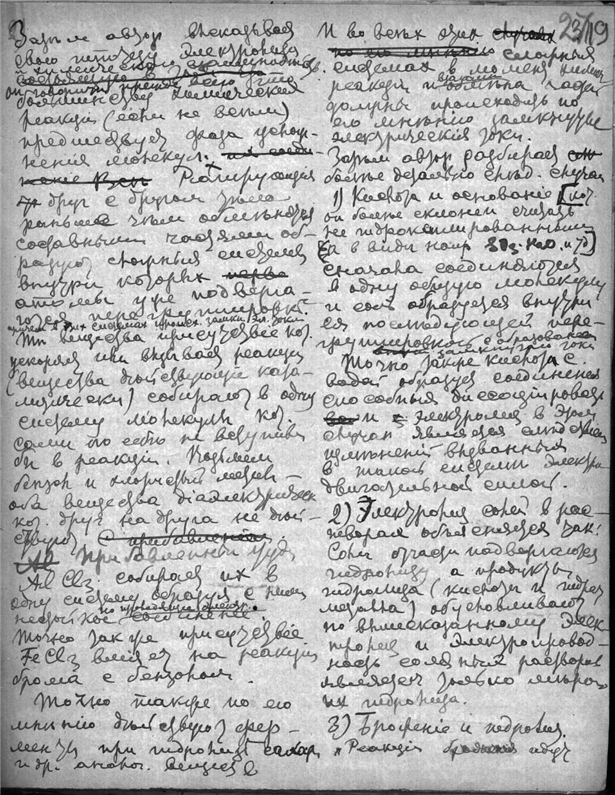 23/19
Затем автор высказывая
свою теорию электролиза
он говорит прежде всего что
большинству химических
реакций (если не всем)
предшествует фаза услож-
нения молекул.
Реагирующия
друг с другом тела
раньше чем обменяться
составными частями об-
разуют сложныя системы
внутри которых
атомы уже подверга-
ются перегруппировке.
Те вещества присутствие кот.
ускоряет или вызывает реакцию
(вещества действующие ката-
литически) собирают в одну
систему молекулы кот.
сами по себе не вступили
бы в реакцию.
бензол и хлористый метил —
оба вещества диэлектрики
кот. друг на друга не дей-
ствуют
Прибавленный туда
AlCl₃ собирает их в
одну систему образуя с ними
нестойкое
Точно так же присутствие
FeCl₃ влияет на реакцию
брома с бензолом.
Точно также по его
мнению действуют фер-
менты при гидролизе сахара
и др. аналог. веществ
И во всех этих
сложных
системах в момент химич.
реакции и обмена
должны происходить по
его мнению замкнутые
электрические токи.
Затем автор разбирает
более детально след. случаи
1) Кислота и основание [кот.
он более склонен считать
не гидроксилированными
а в виде напр.
сначала соединяются
в одну общую молекулу
и соль образуется внутри
ея последующей пере-
группировкой с образованием
замкнутого тока
Точно также кислота с
водой образует соединение
способныя диссоциировать
и электролиз в этом
случае является следствием
изменений вызванных
в такой системе электро
двигательной силой.
2) Электролиз солей в рас-
творах объясняется так:
Соли отчасти подвергаются
гидролизу а продукты
гидролиза (кислота и гидрат
металла) обусловливают
по вышесказанному элек-
тролиз и электропровод-
ность соляных растворов
является только мерою
их гидролиза.
3) Брожение и гидролиз.
„Реакции брожения идут